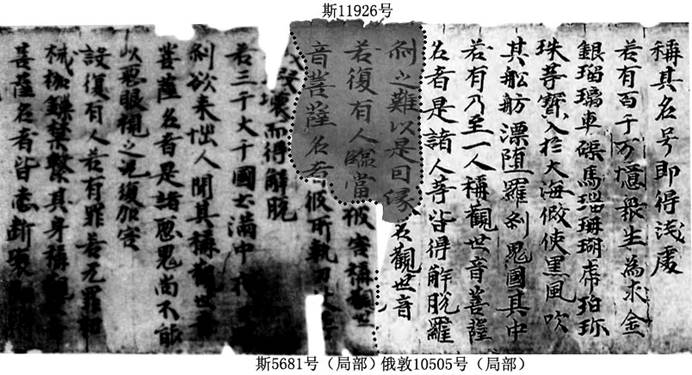 斯11926号
稱其名号即得淺處
若有百千万億衆生為求金
銀瑠璃車𤦲馬瑙珊瑚虎珀珎
珠等寶入於大海假使黑風吹
其舩舫漂堕羅刹鬼國其中
若有乃至一人稱觀世音菩薩
名者是諸人等皆得解脱羅
刹之難以是因縁名觀世音
若復有人臨當被害稱觀世
音菩薩名者彼所執刀
段壞而得解脱
若三千大千國土滿中
刹欲来惱人聞其稱觀世音
菩薩名者是諸惡鬼尚不能
以惡眼視之况復加害
設復有人若有罪若无罪杻
械枷鏁禁繫其身稱觀
菩薩名者皆悉斷壞
斯5681号（局部）俄敦10505号（局部）